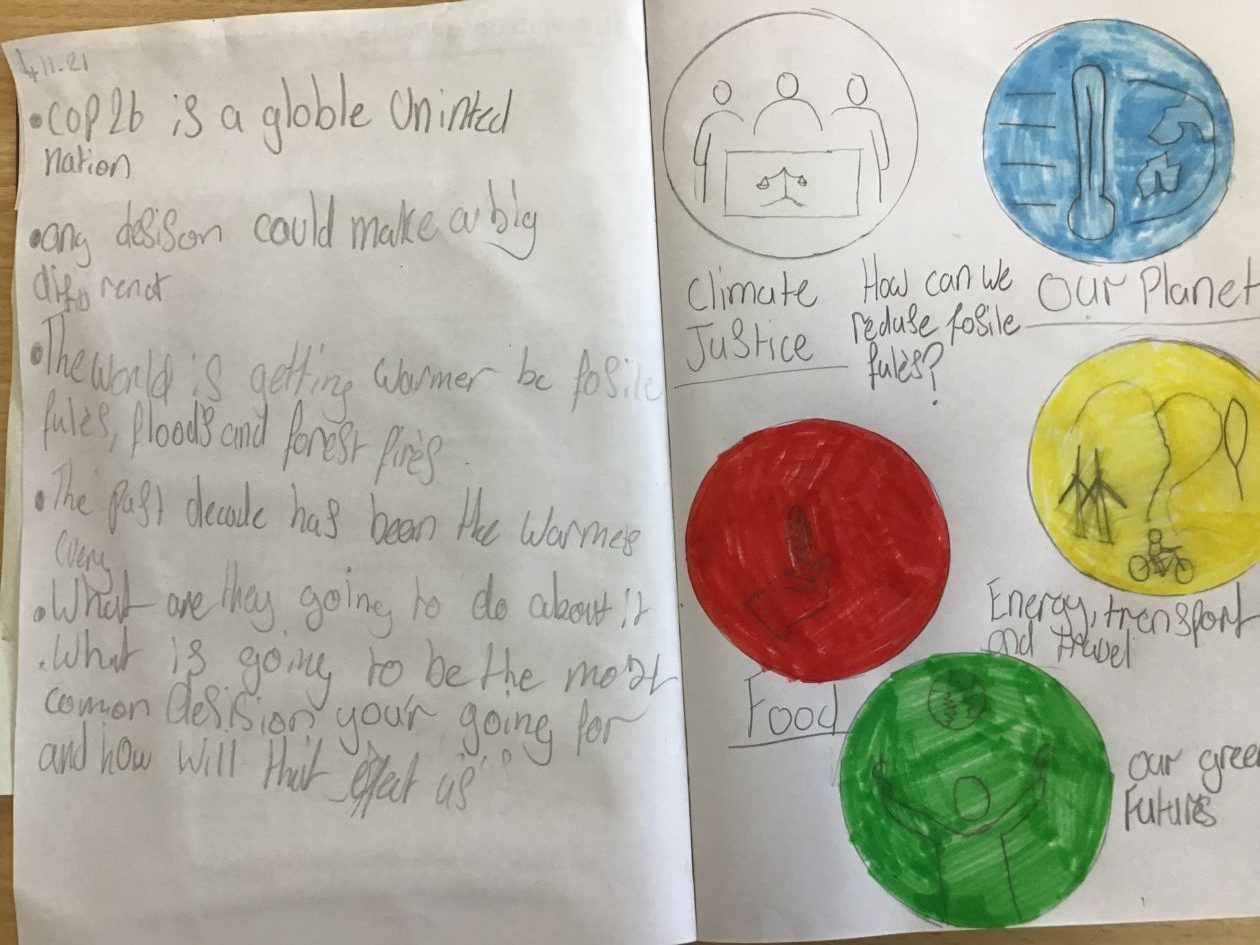 4.11.21
•COP26 is a globle Uninted
nation
•any desison could make a big
diffrenct
•The world is getting warmer bc fosile
fules, floods and forest fires
•The past decade has been the warmes
every
•What are they going to do about it
.What is going to be the most
common desision your going for
and how will that effect us
Climate
Justice
How can we
reduse fosile
fules?
Our Planet
Energy, transport
and travel
Food
our green
Futures